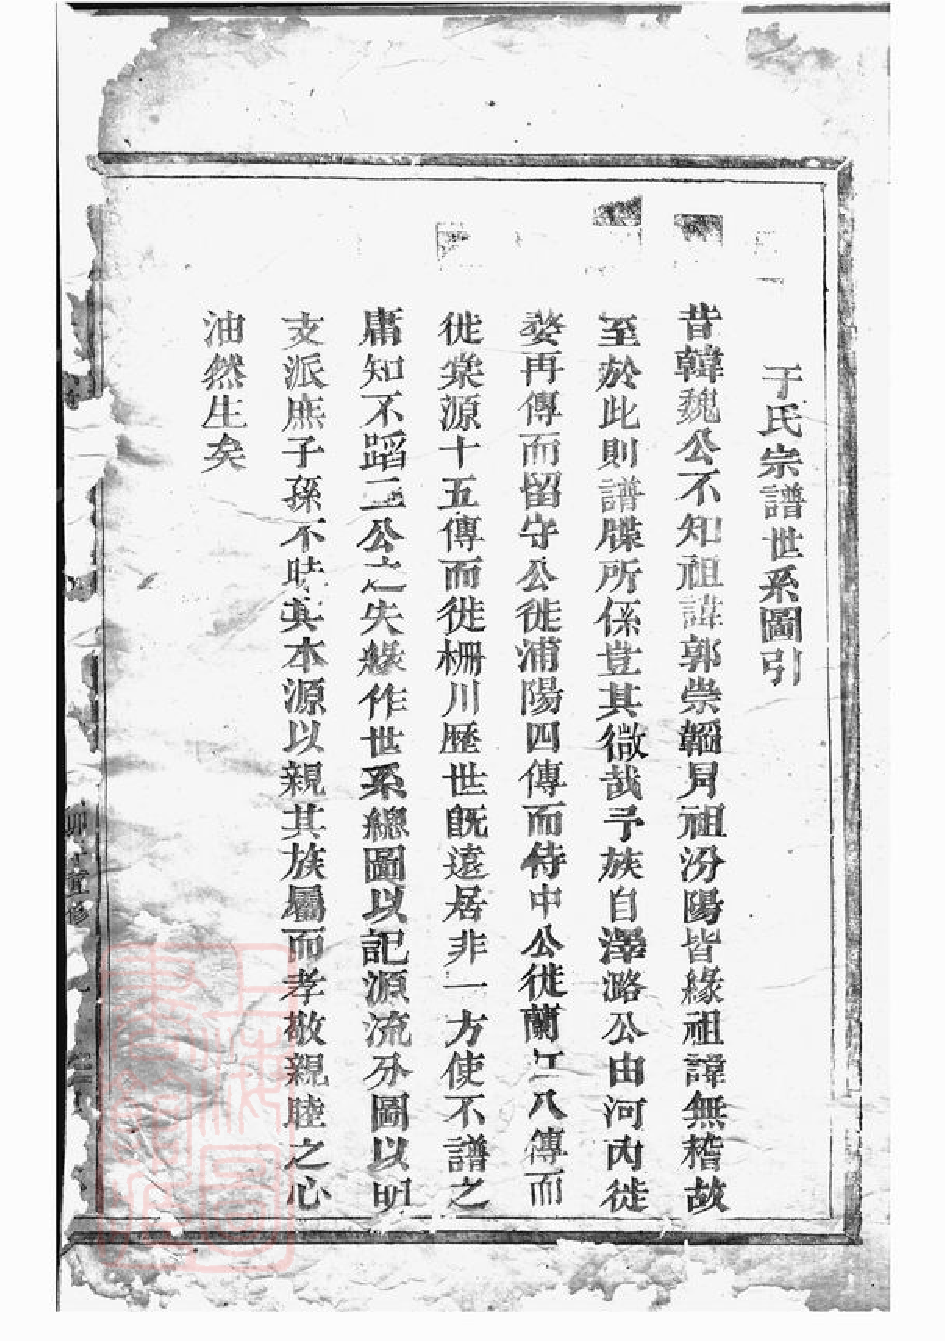 于氏宗譜世系圖引
昔韓魏公不知祖諱郭崇韜冐祖汾陽皆緣祖諱無稽故
至於此則譜牒所係豈其微哉予族自澤潞公由河內徙
婺再傳而留守公徙浦陽四傳而侍中公徙蘭江八傳而
徙棠源十五傳而徙柵川歷世既遠居非一方使不譜之
庸知不蹈二公之失爰作世系總圖以記源流分圖以明
支派庶子孫不昧其本源以親其族屬而孝敬親睦之心
油然生矣
卯重修